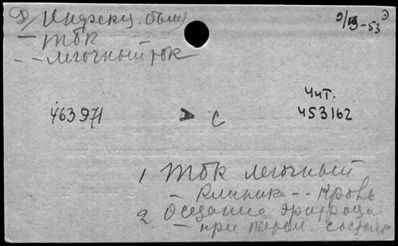 Д) Инфекц. бол.
9/III-53
— ТБК
-- легочный ток
Чит.
463971
А с
453162
1 ТБК легочный
Клиника -- Кровь
2 Оседание эритроци
— при патол. состоян